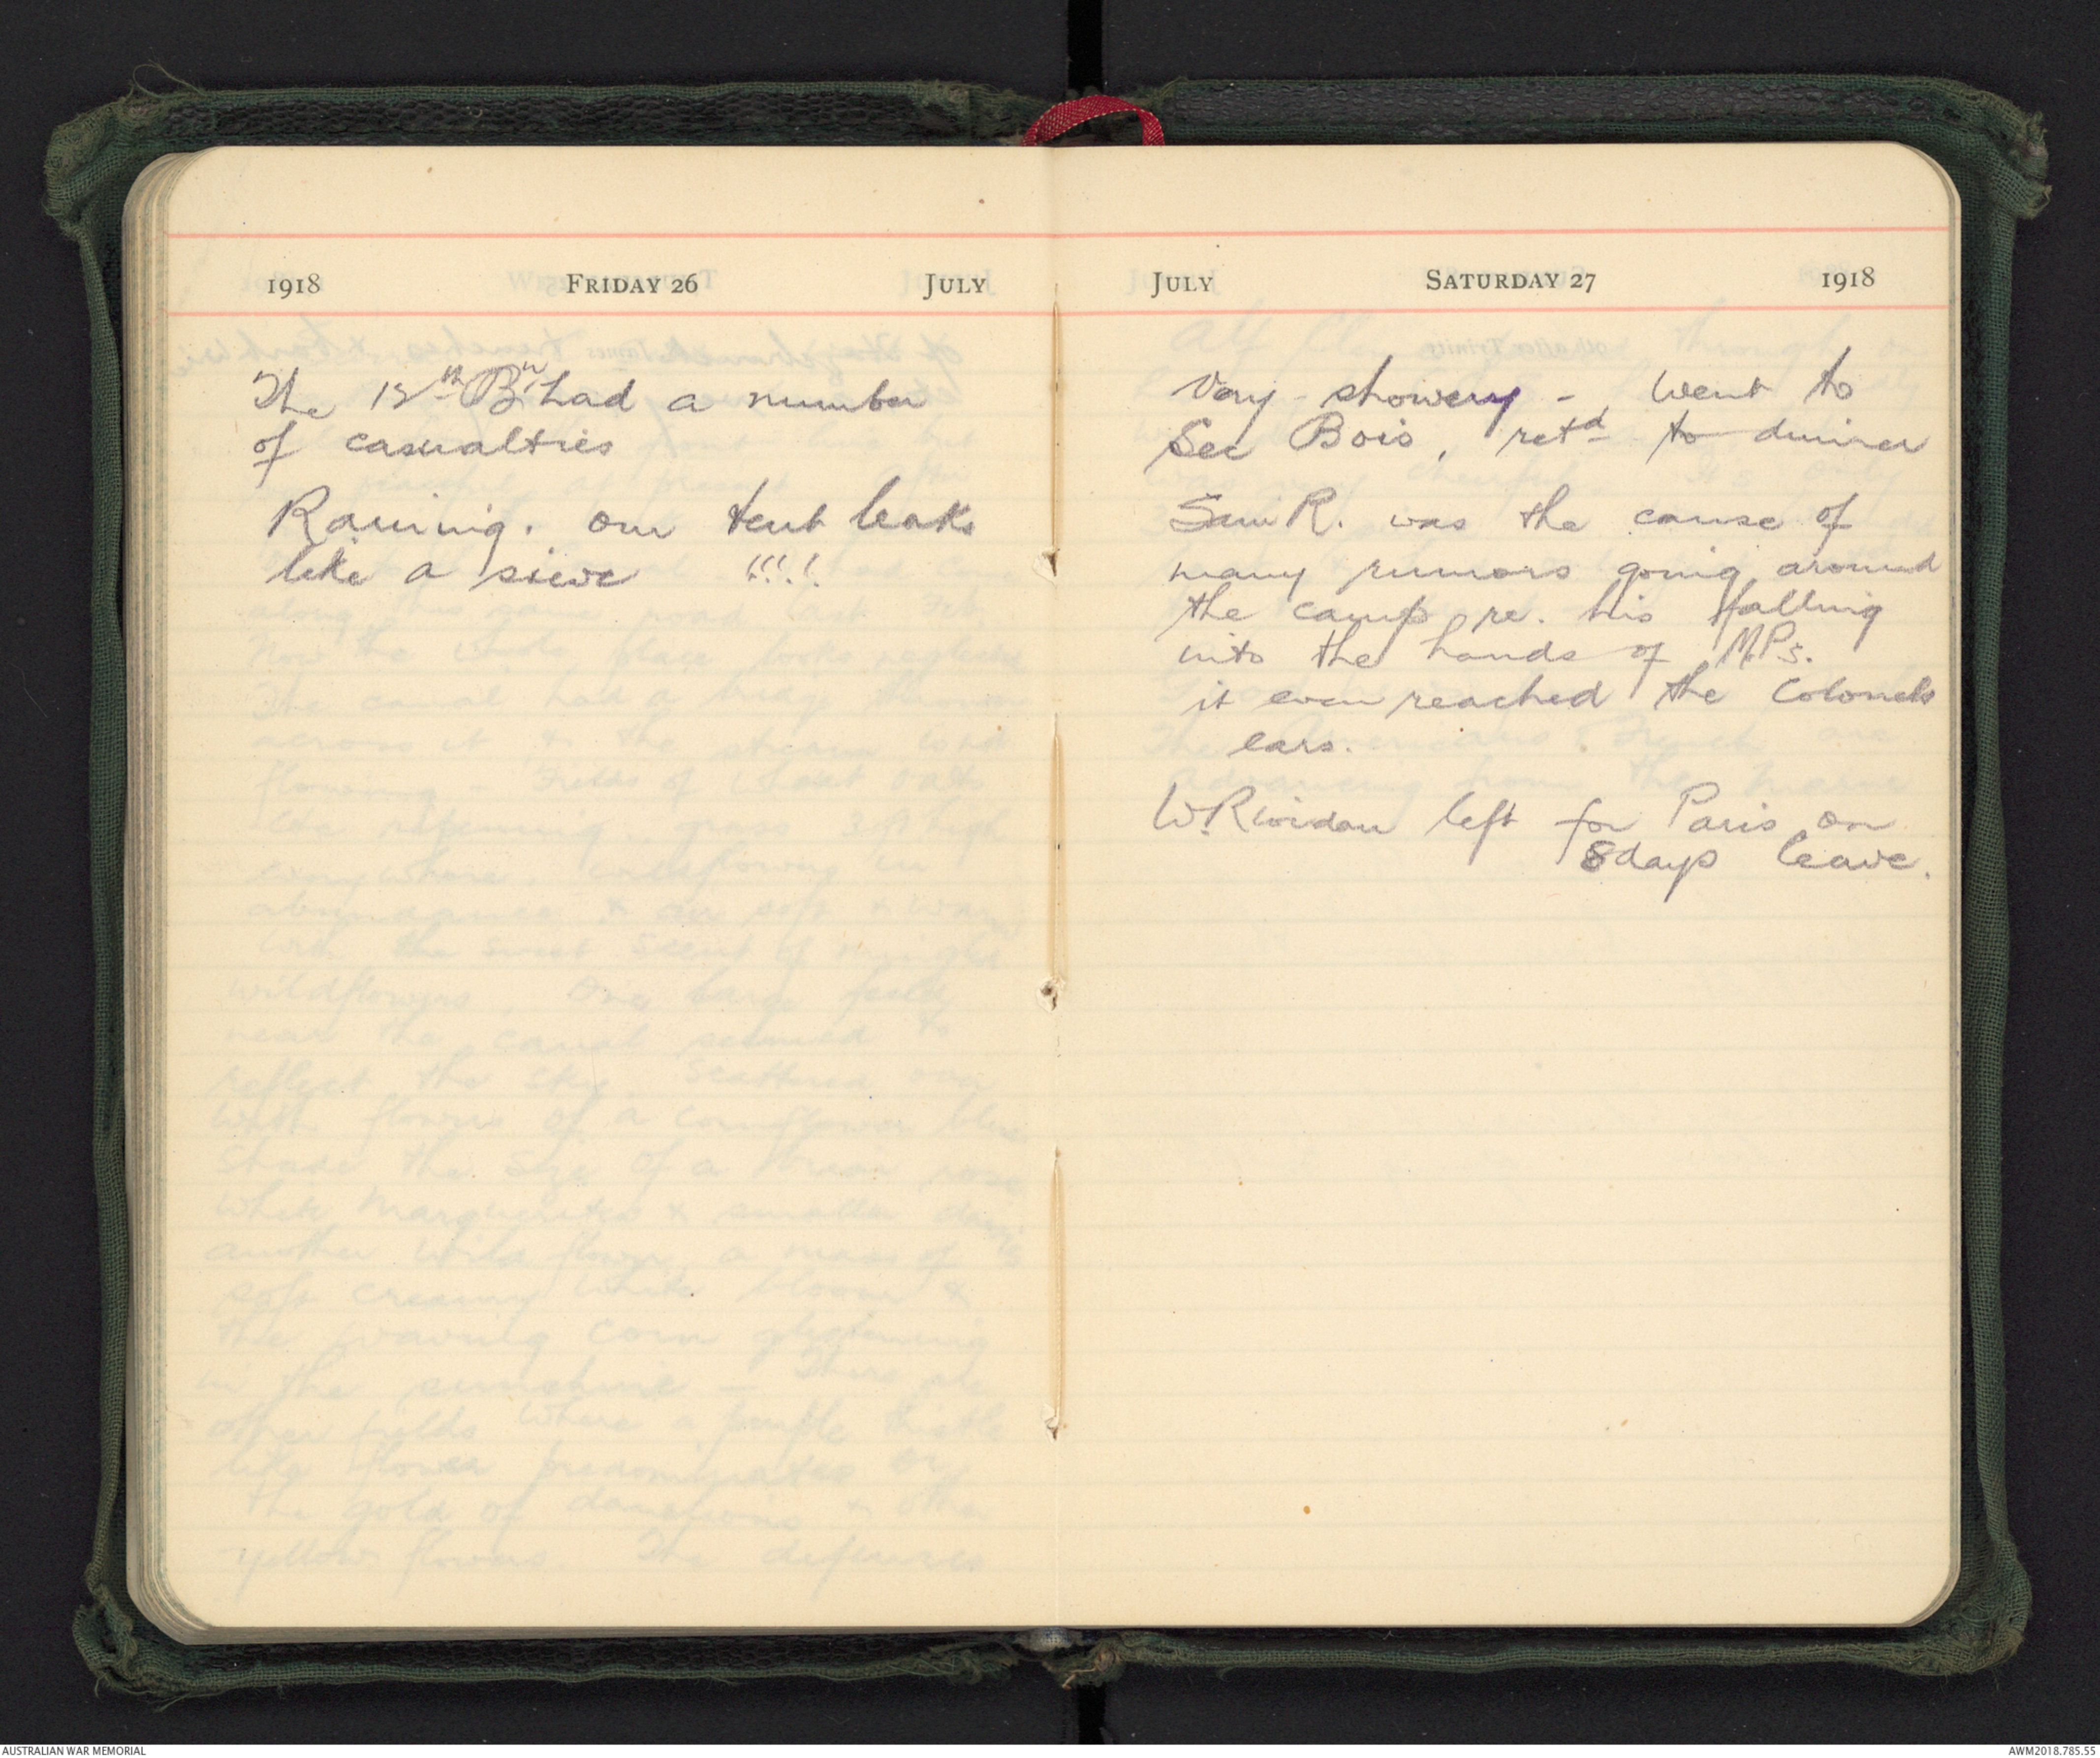 1918 FRIDAY 26 JULY
The 12th Bn. had a number
of casualties
Raining. Our tent leaks
like a sieve !!!!
JULY SATURDAY 27 1918
Very showery - went to
See Bois, retd to dinner
Sam R. was the cause of
many rumors going around
the camp re. his falling
into the hands of M.Ps.
it even reached the Colonels
ears.
left for Paris on
8 days leave.
AUSTRALIAN WAR MEMORIAL
AWM2018.785.55